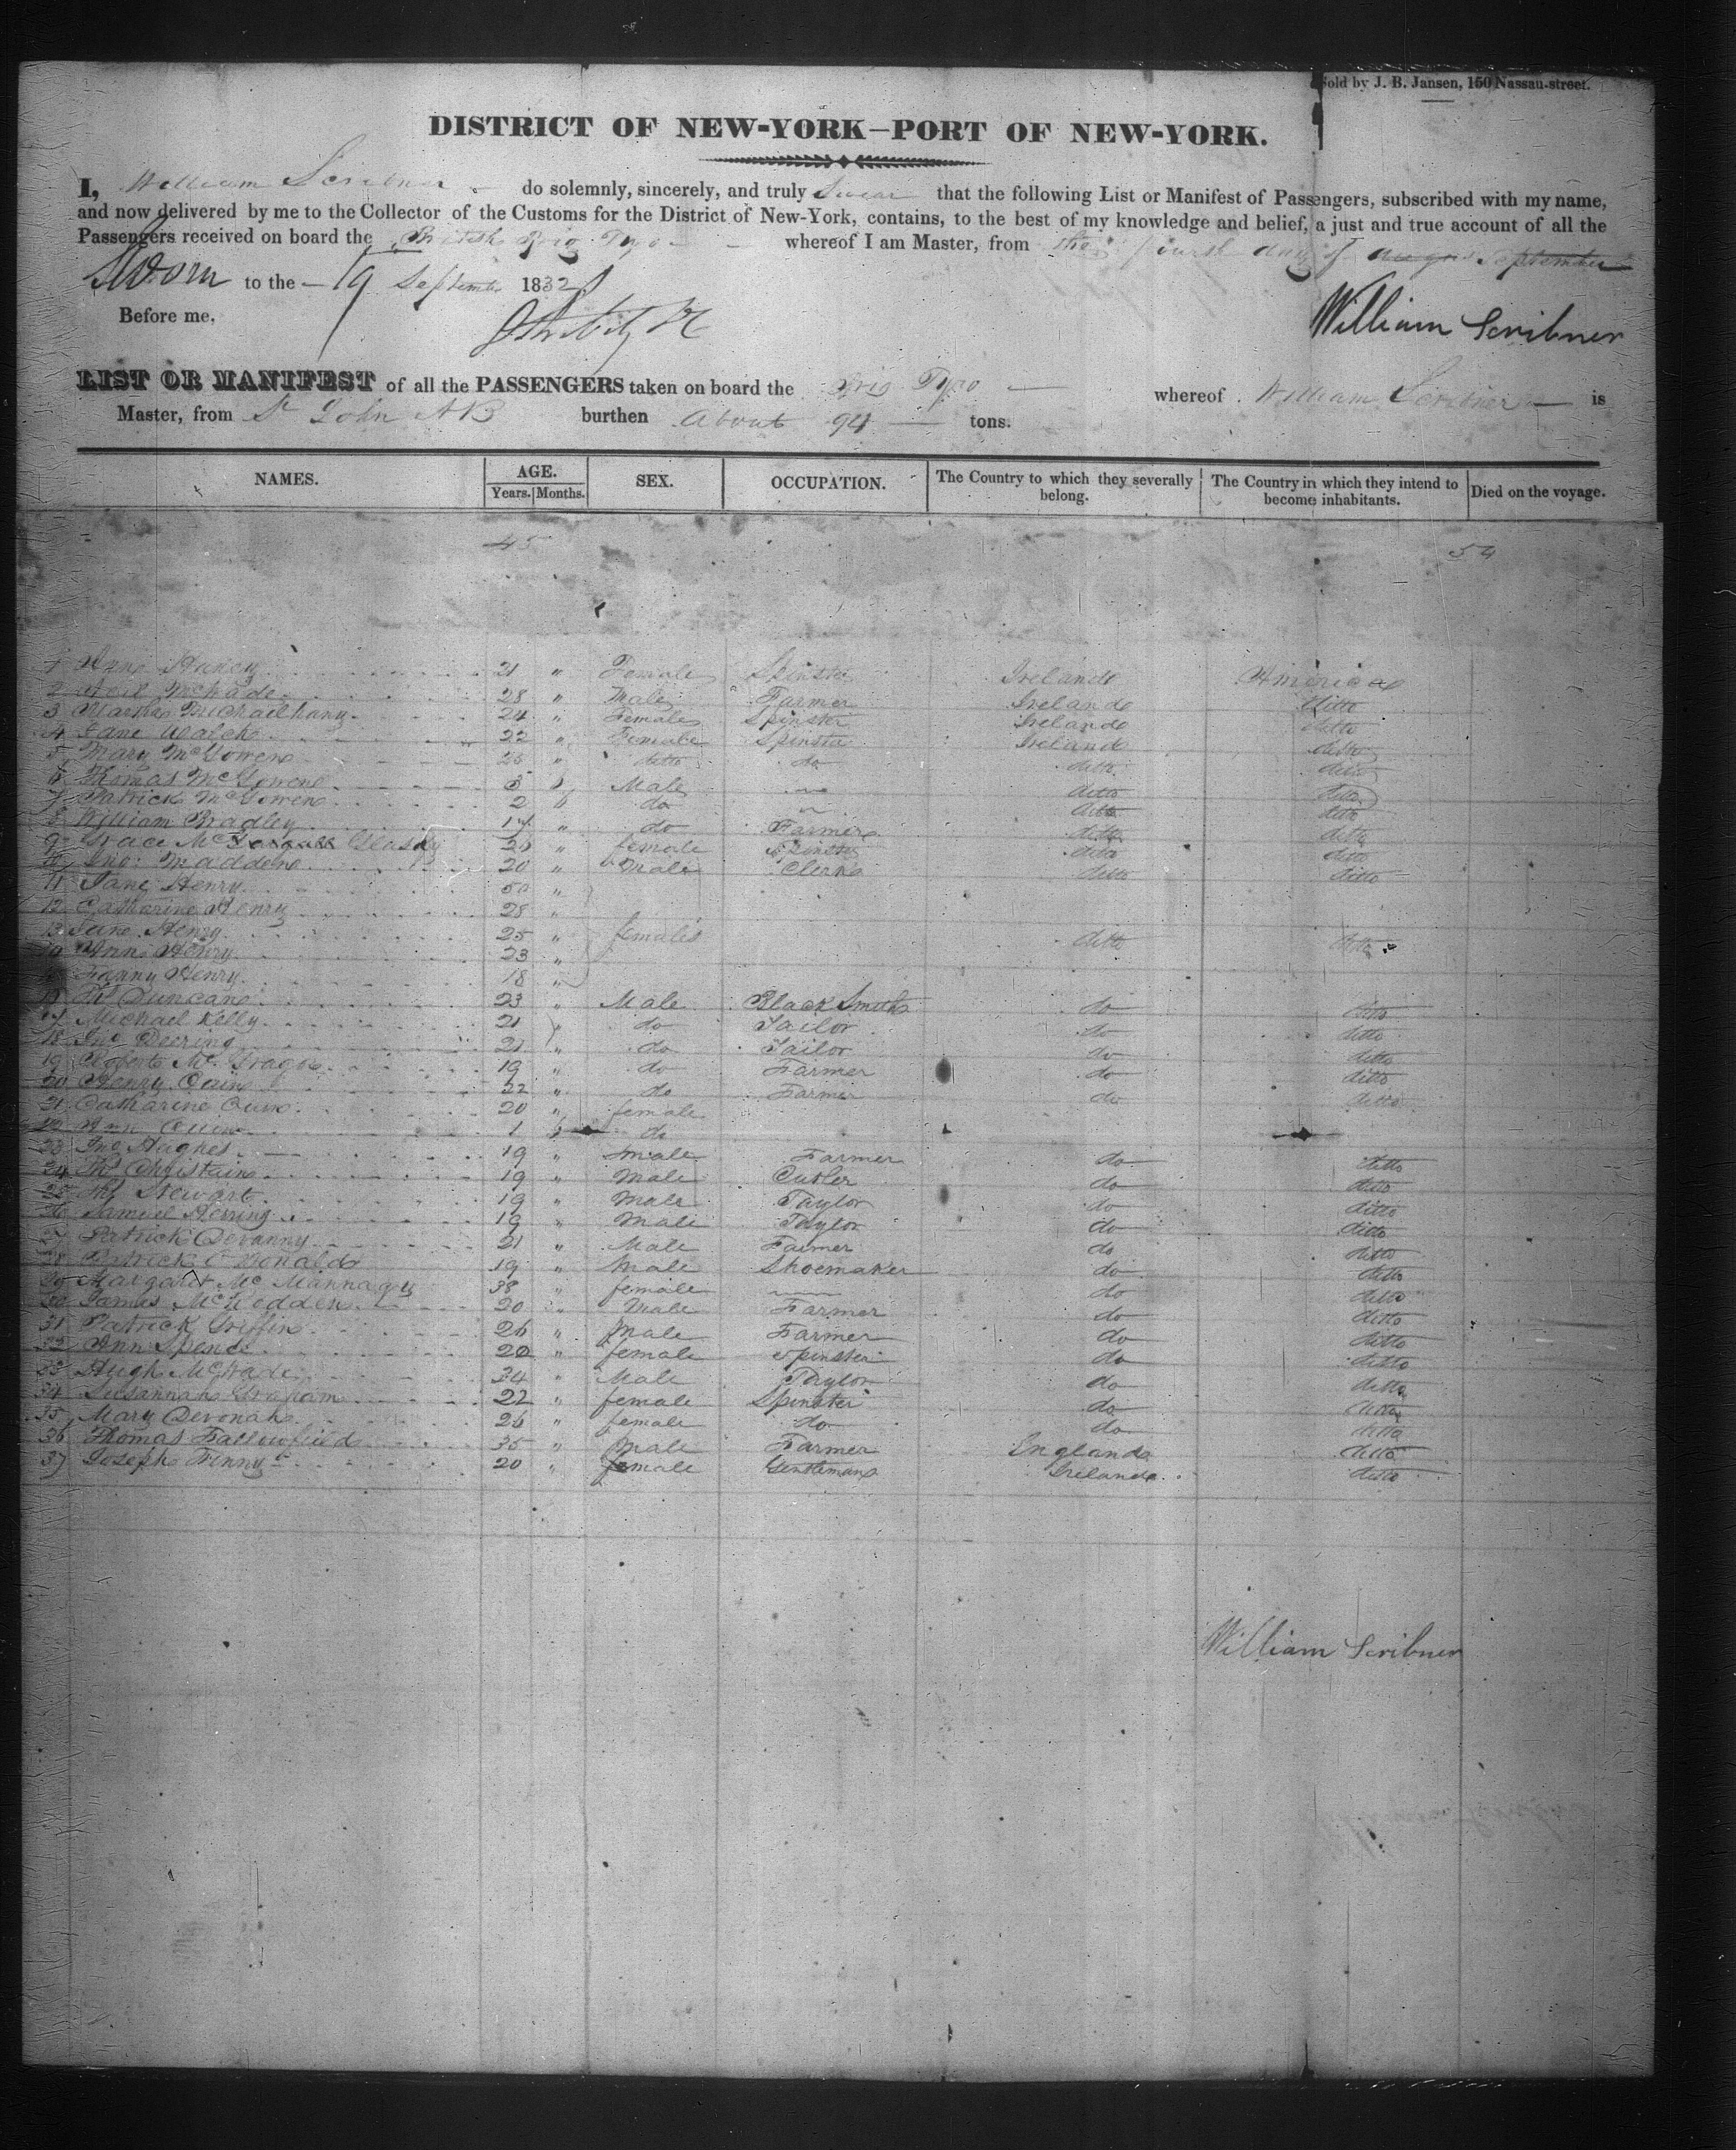 Sold by J. B. Jansen, 150 Nassau-street.
DISTRICT OF NEW-YORK—PORT OF NEW-YORK.
I, William Scribner do solemnly, sincerely, and truly Swear that the following List or Manifest of Passengers, subscribed with my name,
and now delivered by me to the Collector of the Customs for the District of New-York, contains, to the best of my knowledge and belief, a just and true account of all the
Passengers received on board the British Brig Tyro whereof I am Master, from the fourth day of September
Sworn to the 19 September 1832
Before me,
William Scribner
LIST OR MANIFEST of all the PASSENGERS taken on board the Brig Tyro whereof William Scribner is
Master, from St John NB burthen About 94 tons.
NAMES. AGE. Years. Months. SEX. OCCUPATION. The Country to which they severally belong. The Country in which they intend to become inhabitants. Died on the voyage.
45 54
1 Ann Haney 21 " Female Spinster Ireland America
2 Neil McWade 28 " Male Farmer Ireland ditto
3 Martha 24 " Female Spinster Ireland ditto
4 Jane Walch 22 " Female Spinster Ireland ditto
5 Mary McGowen 25 " ditto do ditto ditto
6 Thomas McGowen 5 " Male ditto ditto
7 Patrick McGowen 2 " do " ditto ditto
8 William Bradley 17 " do Farmer ditto ditto
9 Grace Mc 20 " female Spinster ditto ditto
10 Jno: Madden 20 " Male Clerk ditto ditto
11 Jane Henry 50 "
12 Catharine Henry 28 "
13 Jane Henry 25 " females ditto ditto
14 Ann Henry 23 "
15 Fanny Henry 18 "
16 Duncan 23 " Male Black Smith do ditto
17 Michael Kelly 21 " do Tailor do ditto
18 Jno Deering 21 " do Tailor do ditto
19 Robert Mc 19 " do Farmer do ditto
20 Henry 22 " do Farmer do ditto
21 Catharine 20 " female
22 Ann 1 " do
23 Jno Hughes 19 " male Farmer do ditto
24 19 " Male Cutler do ditto
25 Stewart 19 " Male Taylor do ditto
26 Samuel Herring 19 " Male Taylor do ditto
27 Patrick Devanny 21 " Male Farmer do ditto
28 Patrick O Donald 19 " Male Shoemaker do ditto
29 Margaret Mc Mannagy 38 " female do ditto
30 James 20 " Male Farmer do ditto
31 Patrick Griffin 26 " Male Farmer do ditto
32 Ann Spence 20 " female Spinster do ditto
33 Hugh McWade 34 " Male Taylor do ditto
34 Susannah Graham 22 " female Spinster do ditto
35 Mary Devonah 26 " female do do ditto
36 Thomas Fallowfield 35 " Male Farmer England ditto
37 Joseph Finny 20 " male Gentleman Ireland ditto
William Scribner